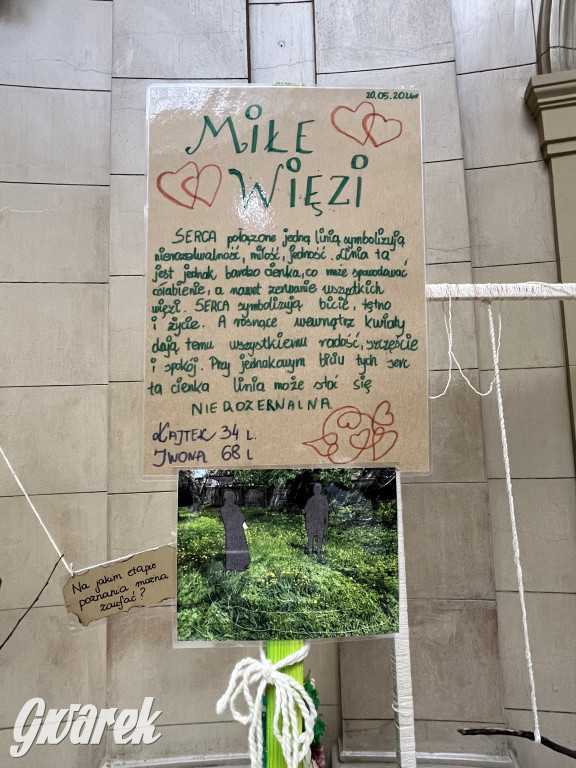 20.05.2024
MIŁE
WIĘZI
SERCA połączone jedną linią symbolizują
nierozerwalność, miłość, jedność. Linia ta
jest jednak bardzo cienka, co może spowodować
osłabienie, a nawet zerwanie wszystkich
więzi. SERCA symbolizują bicie, tętno
i życie. A rosnące wewnątrz kwiaty
dają temu wszystkiemu radość, szczęście
i spokój. Przy jednakowym biciu tych serc
ta cienka linia może stać się
NIEROZERWALNA.
KAJTEK 34 L.
IWONA 68 L
Na jakim etapie
poznania można
zaufać?
Gwarek